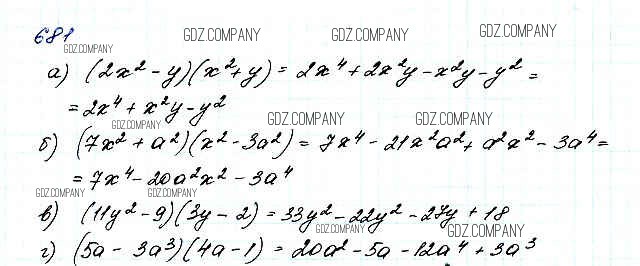 681 GDZ.COMPANY GDZ.COMPANY GDZ.COMPANY
GDZ.COMPANY
а) (2x² - y)(x² + y) = 2x⁴ + 2x²y - x²y - y² =
= 2x⁴ + x²y - y²
GDZ.COMPANY GDZ.COMPANY GDZ.COMPANY
б) (7x² + a²)(x² - 3a²) = 7x⁴ - 21x²a² + a²x² - 3a⁴ =
= 7x⁴ - 20a²x² - 3a⁴
GDZ.COMPANY GDZ.COMPANY
в) (11y² - 9)(3y - 2) = 33y² - 22y² - 27y + 18
GDZ.COMPANY GDZ.COMPANY
г) (5a - 3a³)(4a - 1) = 20a² - 5a - 12a⁴ + 3a³